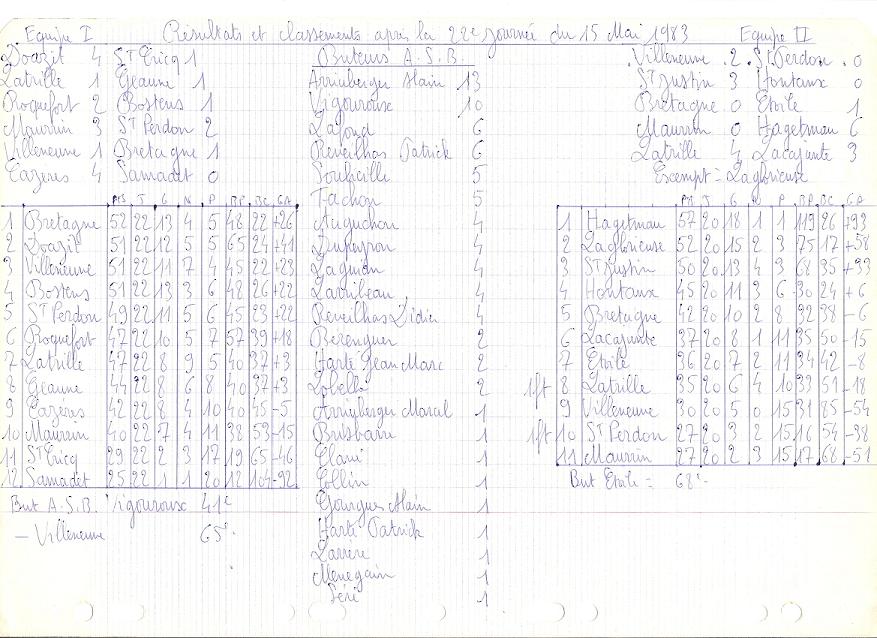 Equipe I Résultats et classements après la 22e journée du 15 Mai 1983 Equipe II
Doazit 4 St Ericq 1
Latrille 1 Geaune 1
Roquefort 2 Bostens 1
Maurrin 3 St Perdon 2
Villeneuve 1 Bretagne 1
Cazères 4 Samadet 0
Pts J G N P BP BC GA
1 Bretagne 52 22 13 4 5 48 22 +26
2 Doazit 51 22 12 5 5 65 24 +41
3 Villeneuve 51 22 11 7 4 45 22 +23
4 Bostens 51 22 13 3 6 48 26 +22
5 St Perdon 49 22 11 5 6 45 23 +22
6 Roquefort 47 22 10 5 7 57 39 +18
7 Latrille 47 22 8 9 5 40 37 +3
8 Geaune 44 22 8 6 8 40 37 +3
9 Cazères 42 22 8 4 10 40 45 -5
10 Maurrin 40 22 7 4 11 38 53 -15
11 St Ericq 29 22 2 3 17 19 65 -46
12 Samadet 25 22 1 1 20 12 104 -92
But A.S.B. Vigouroux 41e
- Villeneuve 65e
Buteurs A.S.B.
Arriuberger Alain 13
Vigouroux 10
Lafond 6
Reveilhas Patrick 6
5
Tachon 5
4
Dupeyron 4
Laguian 4
4
Reveilhas Didier 4
Berenguer 2
Harté Jean Marc 2
2
Arriuberger Marcel 1
1
1
1
Gourgues Alain 1
Harté Patrick 1
Larrère 1
Menegain 1
1
Villeneuve 2 St Perdon 0
St Justin 3 Hontanx 0
Bretagne 0 Etoile 1
Maurrin 0 Hagetmau 6
Latrille 4 Lacajunte 3
Exempt = Laglorieuse
Pts J G N P BP BC GA
1 Hagetmau 57 20 18 1 1 119 26 +93
2 Laglorieuse 52 20 15 2 3 75 17 +58
3 St Justin 50 20 13 4 3 68 35 +33
4 Hontanx 45 20 11 3 6 30 24 +6
5 Bretagne 42 20 10 2 8 32 38 -6
6 Lacajunte 37 20 8 1 11 35 50 -15
7 Etoile 36 20 7 2 11 34 42 -8
1ft 8 Latrille 35 20 6 4 10 33 51 -18
9 Villeneuve 30 20 5 0 15 31 85 -54
1ft 10 St Perdon 27 20 3 2 15 16 54 -38
11 Maurrin 27 20 2 3 15 17 68 -51
But Etoile = 68e